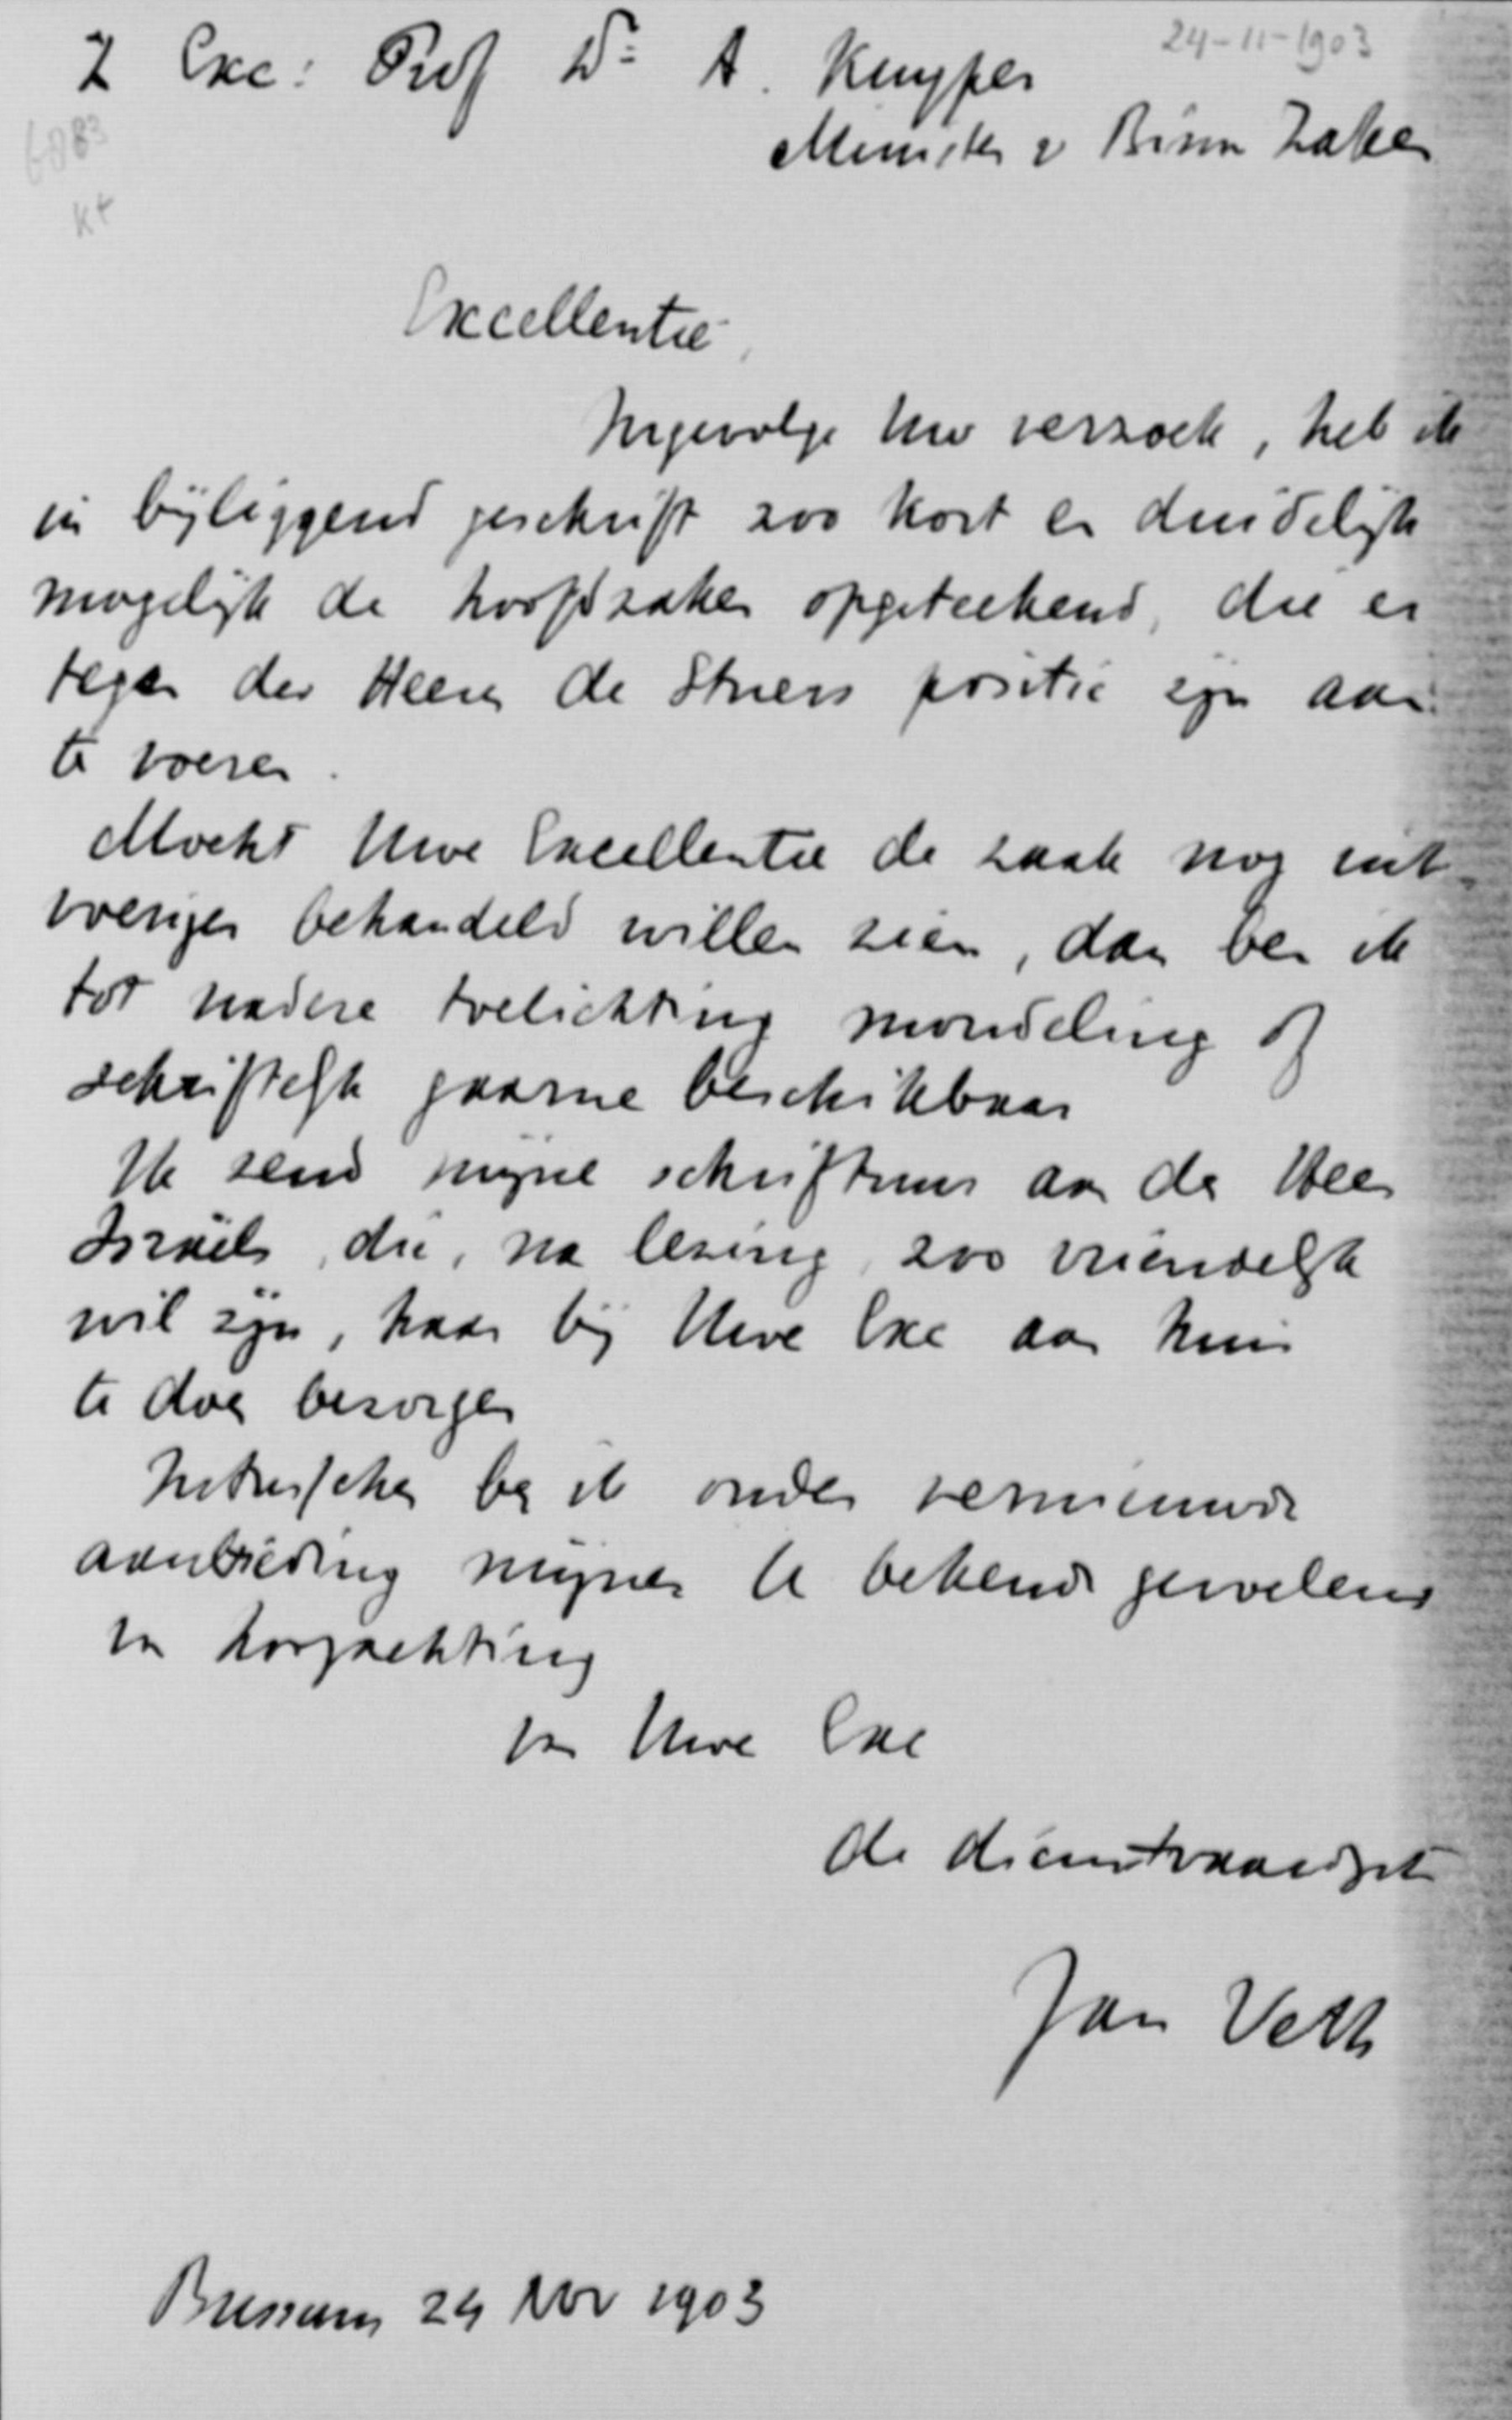 24-11-1903
Z Exc: Prof Dr A. Kuyper
Minister v Binn Zaken
6883
kt
Excellentie,
Ingevolge Uw verzoek, heb ik
in bijliggend geschrift zoo kort en duidelijk
mogelijk de hoofdzaken opgeteekend, die er
tegen den Heer de Stuers positie zijn aan
te voeren.
Mocht Uwe Excellentie de zaak nog uit-
voeriger behandeld willen zien, dan ben ik
tot nadere toelichting mondeling of
schriftelijk gaarne beschikbaar
Ik zend mijne schriftuur aan den Heer
Israëls, die, na lezing, zoo vriendelijk
wil zijn, haar bij Uwe Exc aan huis
te doen bezorgen
Intusschen ben ik onder vernieuwde
aanbieding mijner U bekende gevoelens
van hoogachting
van Uwe Exc
de dienstvaardigste
Jan Veth
Bussum 24 Nov 1903